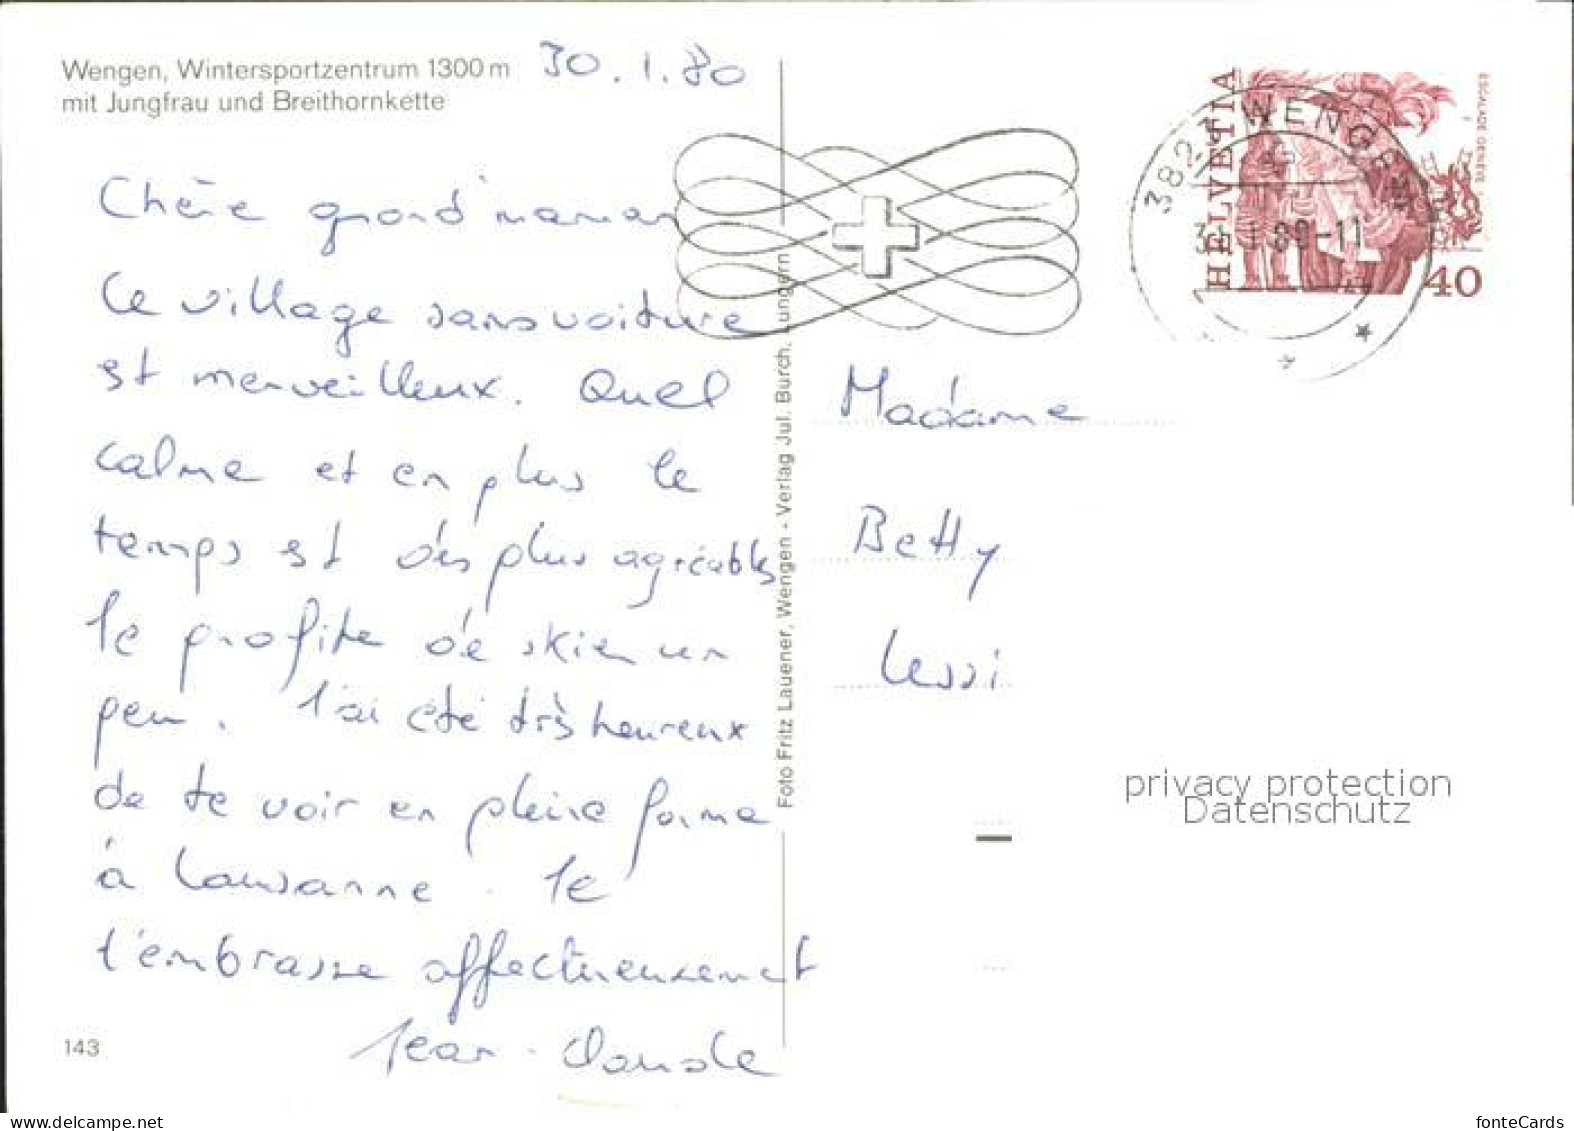 Wengen, Wintersportzentrum 1300 m
mit Jungfrau und Breithornkette
30.1.80
Chère grand'maman
Le village sans voiture
est merveilleux. Quel
calme et en plus le
temps est des plus agréables
Je profite de skier un
peu. J'ai été très heureux
de te voir en pleine forme
à Lausanne. Je
t'embrasse affectueusement
Jean-Claude
143
Foto Fritz Lauener, Wengen - Verlag Jul. Burch, Lungern
HELVETIA
ESCALADE GENEVE
40
3823 WENGEN
Madame
Betty
privacy protection
Datenschutz
www.delcampe.net
fonteCards